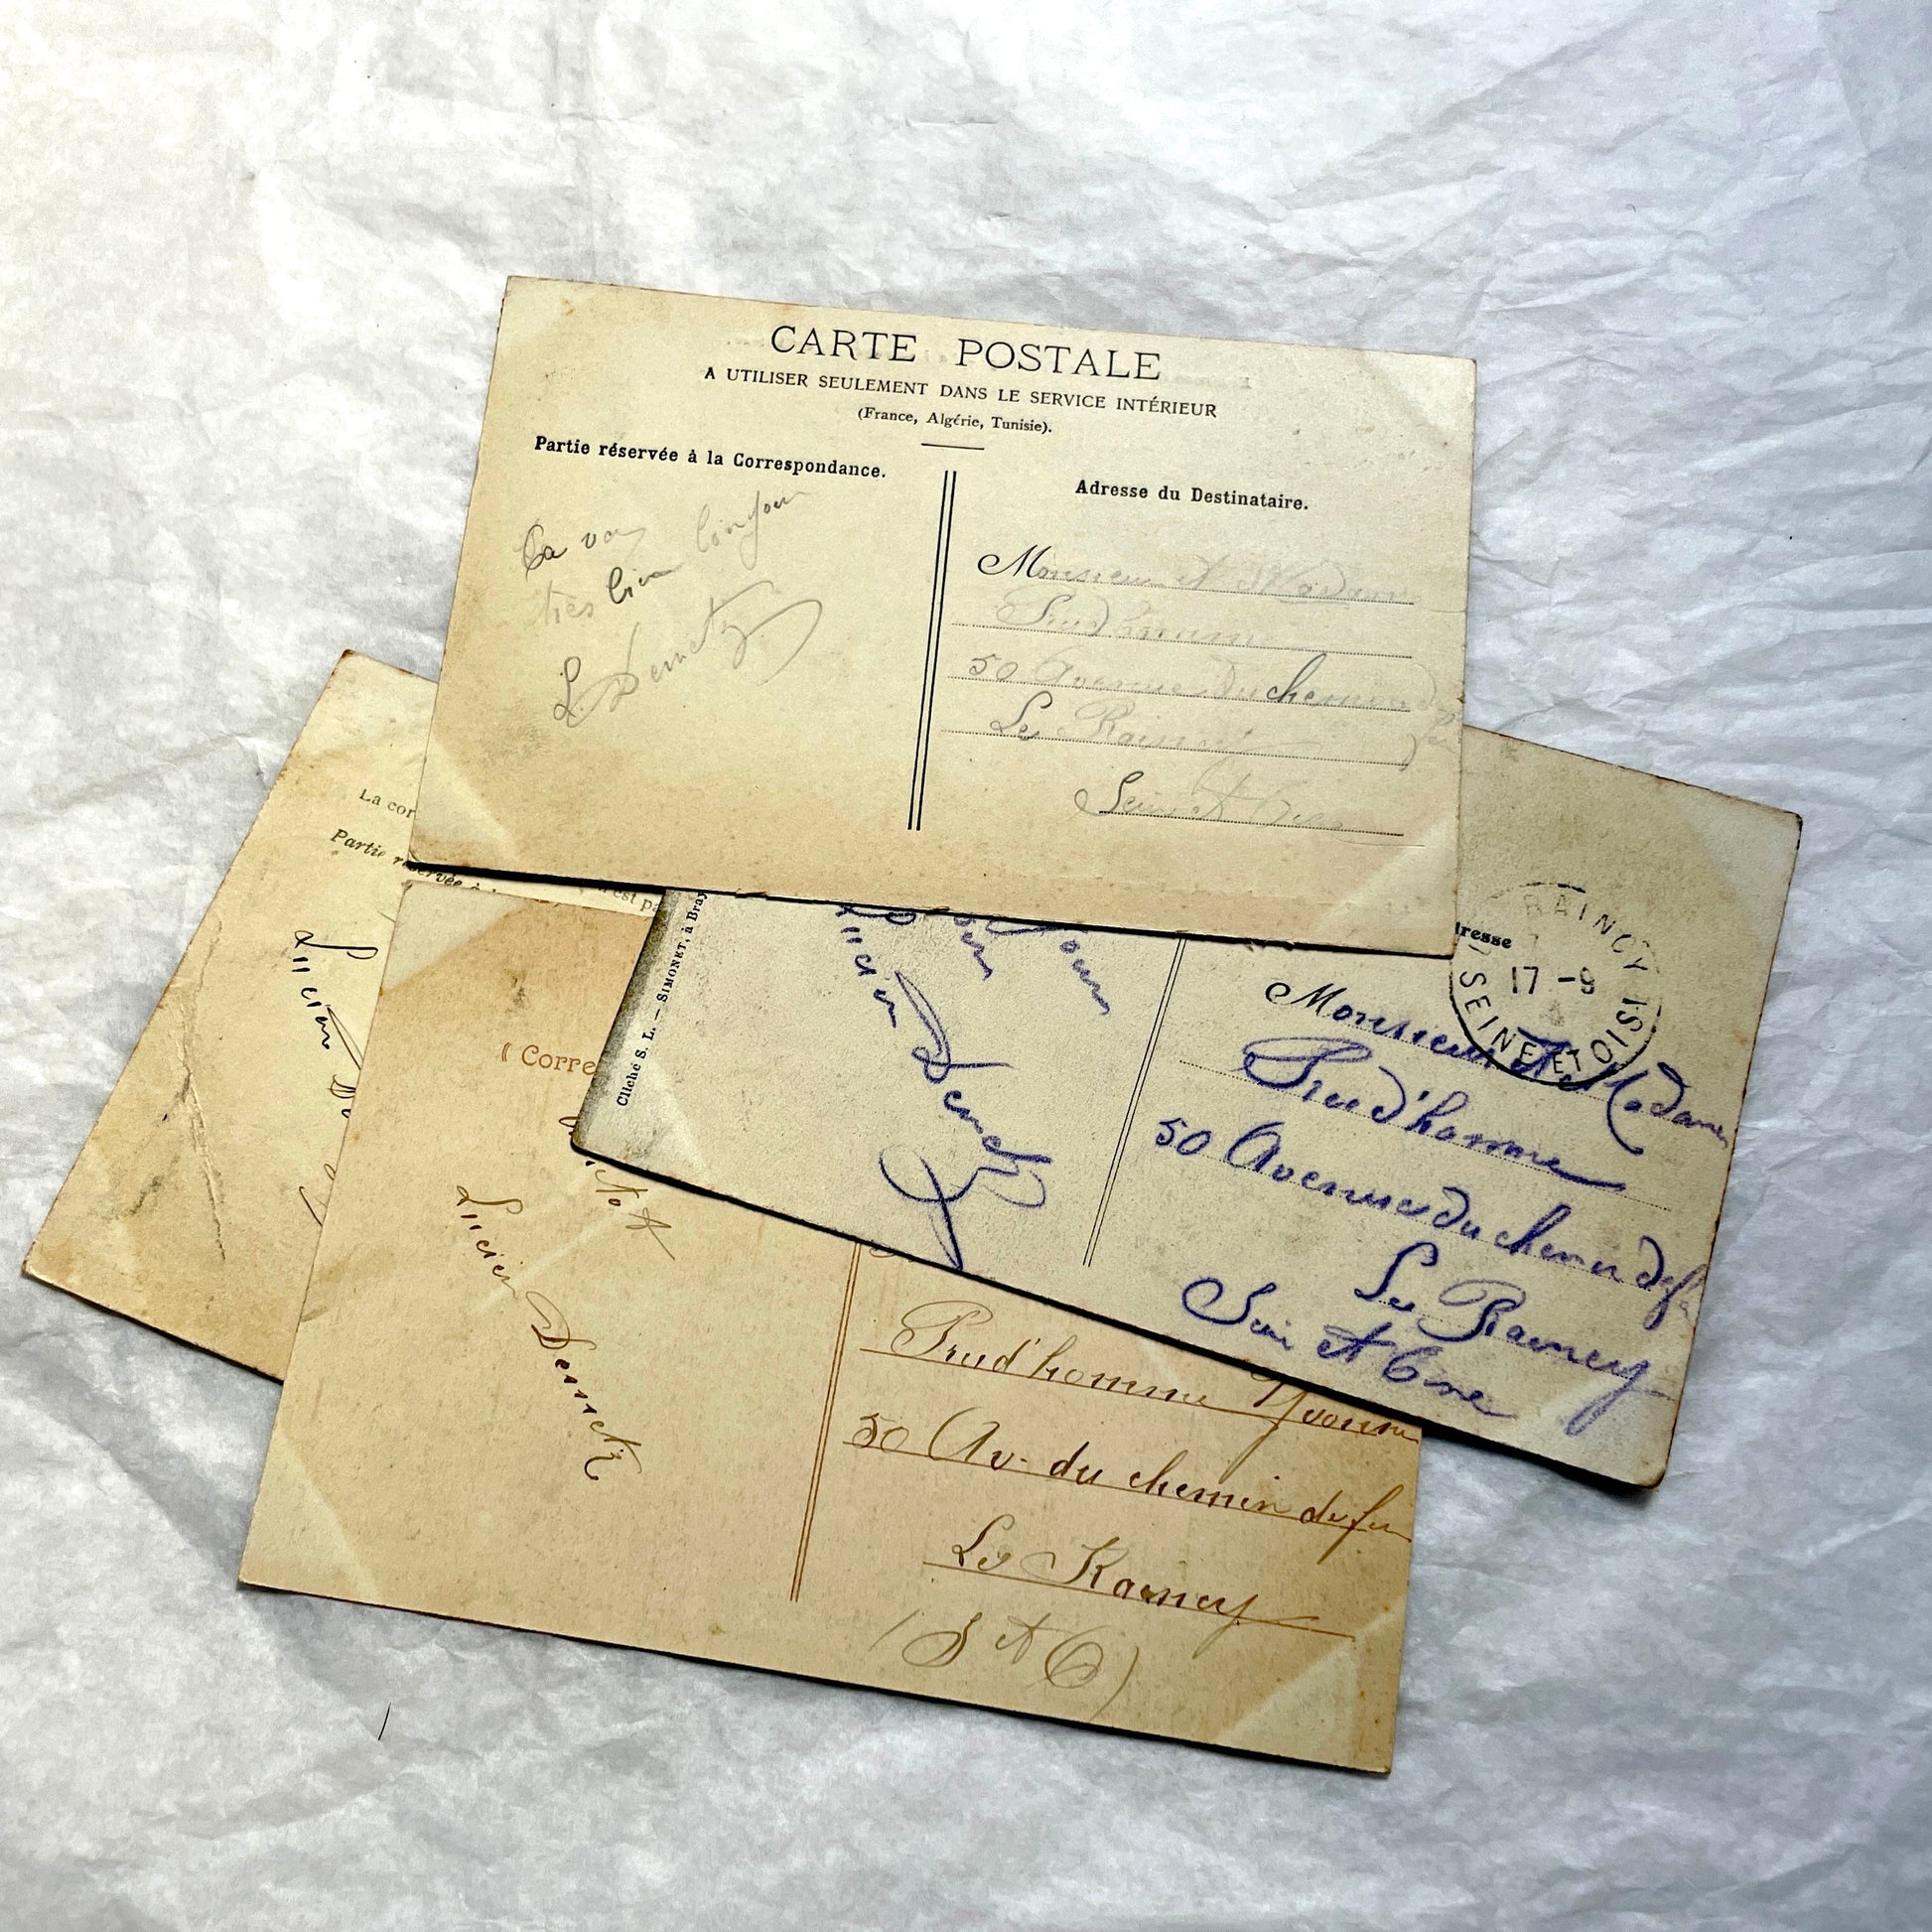 CARTE POSTALE
A UTILISER SEULEMENT DANS LE SERVICE INTÉRIEUR
(France, Algérie, Tunisie).
Partie réservée à la Correspondance.
Ca va
très bien bonjour
L. Demetz
Adresse du Destinataire.
Monsieur et Madame
Prud'homme
50 Avenue du chemin de
fer
Le Raincy
Seine et Oise
La cor
Partie réservée à
est pa
Lucien
Cliché S. L. — SIMONET, à Bray
Lucien Demetz
resse
RAINCY
17 -9
SEINE ET OISE
Monsieur et Madame
Prud'homme
50 Avenue du chemin de fer
Le Raincy
Seine et Oise
Corre
Lucien Demetz
Prud'homme Yvonne
50 Av. du chemin de fer
Le Raincy
(S et O)